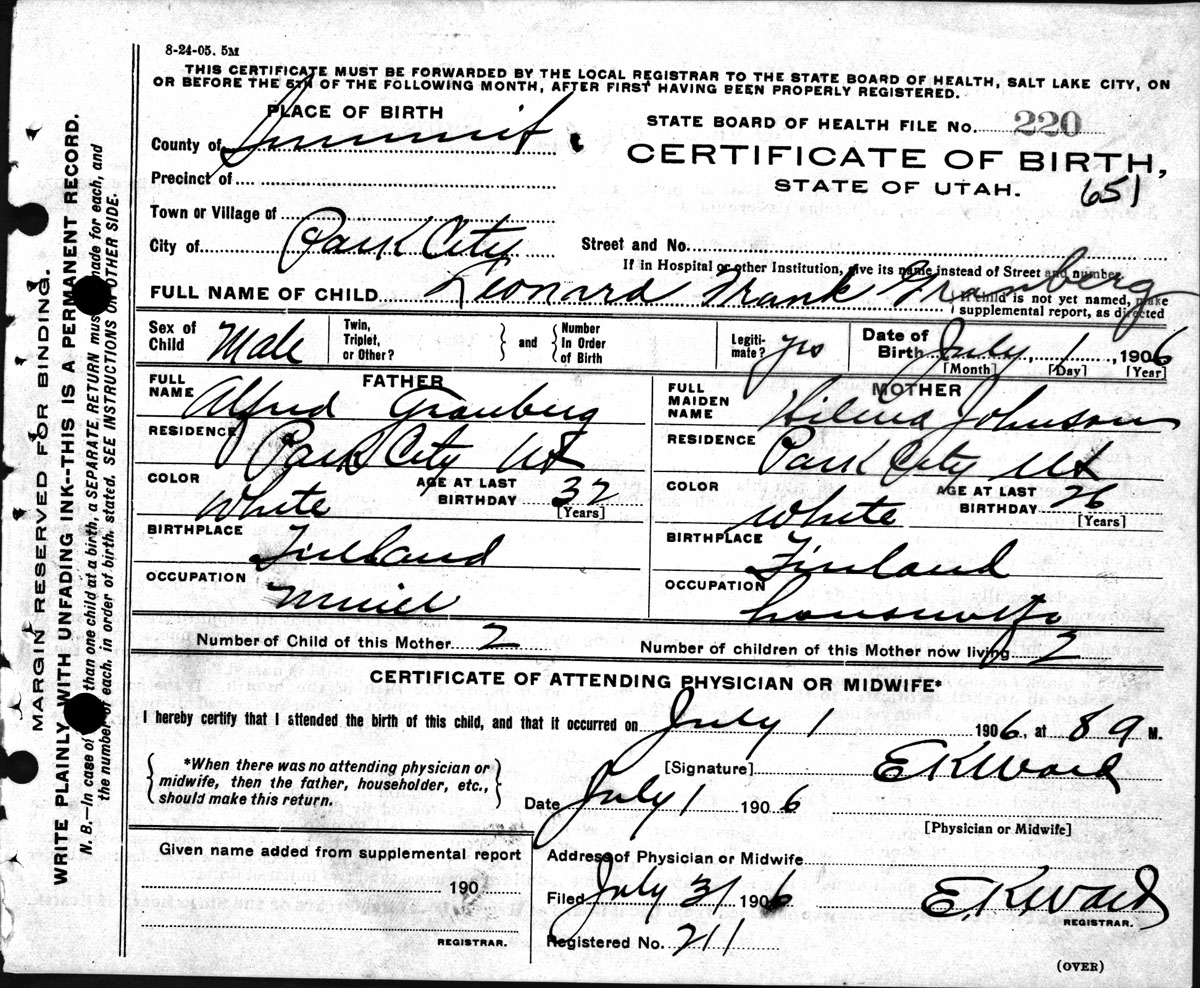 8-24-05. 5M
THIS CERTIFICATE MUST BE FORWARDED BY THE LOCAL REGISTRAR TO THE STATE BOARD OF HEALTH, SALT LAKE CITY, ON
OR BEFORE THE 5TH OF THE FOLLOWING MONTH, AFTER FIRST HAVING BEEN PROPERLY REGISTERED.
PLACE OF BIRTH
County of Summit
Precinct of
Town or Village of
City of Park City
STATE BOARD OF HEALTH FILE No. 220
CERTIFICATE OF BIRTH,
STATE OF UTAH.
651
Street and No.
If in Hospital or other Institution, give its name instead of Street and number.
FULL NAME OF CHILD Leonard Frank Granberg
If child is not yet named, make
supplemental report, as directed
Sex of Child Male
Twin, Triplet, or Other?
and
Number In Order of Birth
Legitimate? yes
Date of Birth July 1, 1906
[Month] [Day] [Year]
FATHER
FULL NAME Alfred Granberg
RESIDENCE Park City Ut
COLOR White
AGE AT LAST BIRTHDAY 32
[Years]
BIRTHPLACE Finland
OCCUPATION Miner
MOTHER
FULL MAIDEN NAME Hilma Johnson
RESIDENCE Park City Ut
COLOR White
AGE AT LAST BIRTHDAY 26
[Years]
BIRTHPLACE Finland
OCCUPATION housewife
Number of Child of this Mother 2
Number of children of this Mother now living 2
CERTIFICATE OF ATTENDING PHYSICIAN OR MIDWIFE*
I hereby certify that I attended the birth of this child, and that it occurred on July 1 1906, at 8 a M.
*When there was no attending physician or
midwife, then the father, householder, etc.,
should make this return.
[Signature] E K Ward
Date July 1 1906
[Physician or Midwife]
Given name added from supplemental report
190
REGISTRAR.
Address of Physician or Midwife
Filed July 31 1906
E. K Ward
REGISTRAR.
Registered No. 211
(OVER)
MARGIN RESERVED FOR BINDING.
WRITE PLAINLY WITH UNFADING INK--THIS IS A PERMANENT RECORD.
N. B.—In case of than one child at a birth, a SEPARATE RETURN must made for each, and
the number of each, in order of birth, stated. SEE INSTRUCTIONS ON OTHER SIDE.